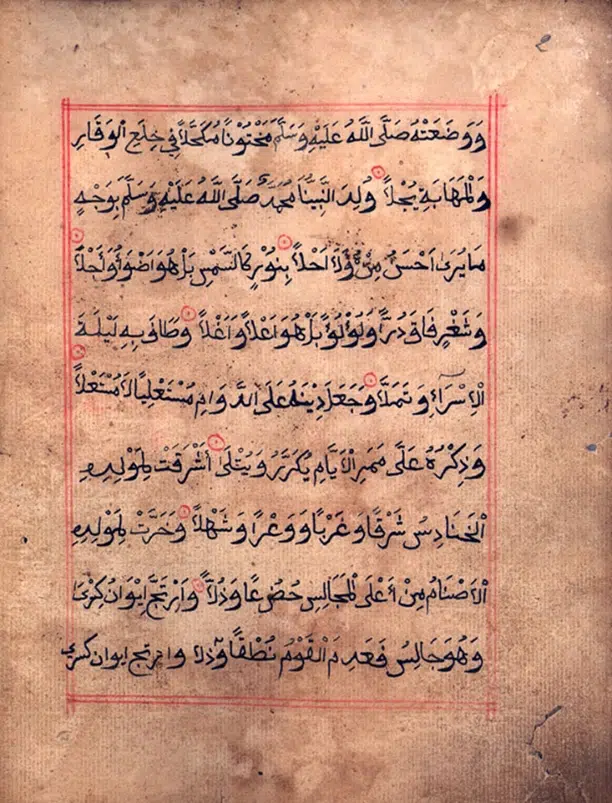 وَوَضَعَتْهُ صَلَّى اللَّهُ عَلَيْهِ وَسَلَّمَ مَخْتُونًا مُكَحَّلًا فِي خِلَعِ الْوَقَارِ
وَالْمَهَابَةِ يُجْلَا وُلِدَ النَّبِيُّنَا مُحَمَّد صَلَّى اللَّهُ عَلَيْهِ وَسَلَّمَ بِوَجْهٍ
مَا يُرَى اَحْسَنُ مِنْهُ وَلَا اَحْلَا بِنُوْرٍ كَالشَّمْسِ بَلْ هُوَ اَضْوَؤُ وَأَجْلَا
وَثَغْرٍ فَاقَ دُرًّا وَلُؤْلُؤً بَلْ هُوَ اَعْلَا وَاَغْلَا وَطَافَ بِهِ لَيْلَةَ
الْاِسْرَآءِ وَتَمَلَّا وَجَعَلَ دِيْنَهُ عَلَى الدَّوَامِ مُسْتَعْلِيًا لَا مُسْتَعْلَا
وَذِكْرُهُ عَلَى مَمَرِّ الْاَيَّامِ يُكَرَّرُ وَيُتْلَى أَشْرَقَتْ لِمَوْلِدِهِ
الْحَنَادِسُ شَرْقًا وَغَرْبًا وَوَعْرًا وَشَهْلًا وَخَرَّتْ لِمَوْلِدِهِ
الْاَصْنَامُ مِنْ أَعْلَى الْمَجَالِسِ خُضُعًا وَذُلًّا وَارْتَجَّ اِيْوَانُ كِسْرَى
وَهُوَ جَالِسٌ فَعَدِمَ الْقَوْمُ نُطْقًا وَذَلَا وارتج ايوان كسرى